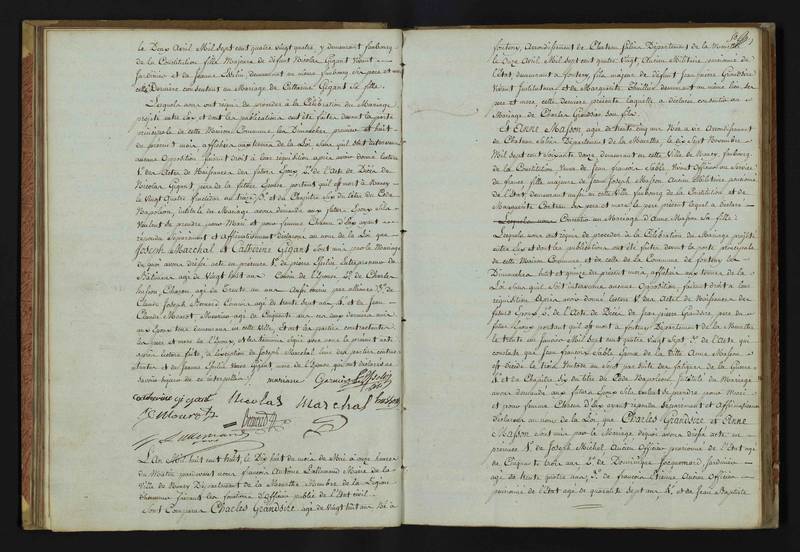 le Deux Avril Mil Sept cent quatre vingt quatre, y demeurant faubourg
de la Constitution fille Majeure de défunt Nicolas Gigant Vivant
Jardinier et de Jeanne demeurant au même faubourg
cette Dernière consentant au Mariage de Catherine Gigant Sa fille.
Lesquels nous ont requis de procéder à la Célébration du Mariage
projetté entre eux et dont les publications ont été faites devant la porte
principale de cette Maison Commune les Dimanches premier et huit
du présent mois, affichées aux termes de la Loi, Sans qu'il Soit intervenu
aucune Opposition, faisant droit à leur réquisition après avoir donné lecture
1° des Actes de Naissances des futurs Epoux 2° de l'Acte de Décès de
Nicolas Gigant, père de la future Epouse portant qu'il est mort à Nancy
le Vingt Quatre fructidor an et du Chapitre Six du titre du Code
Napoléon, intitulé du Mariage avons demandé aux futurs Epoux S'ils
Veulent se prendre pour Mari et pour femme Chacun d'eux ayant
répondu Séparément et affirmativement déclarons au nom de la Loi que
Joseph Marchal et Catherine Gigant Sont unis par le Mariage
de quoi avons dressé acte en présence 1° de pierre
Bâtimens agé de Vingt huit ans Cousin de l'Epouse 2° de Charles
agé de Trente un ans par alliance 3° de
Claude Joseph Bernard agé de trente Sept ans, 4° et de Jean
Claude Mourot agé de Cinquante
aux Epoux tous demeurans en cette Ville, et ont les parties contractantes
les père et mère de l'Epoux, et les témoins Signé avec nous le présent acte
après lecture faite, à l'exception de Joseph Marchal l'une des parties contrac-
tantes et de Jeanne mère de l'Epouse qui ont déclaré ne
Savoir Signer de ce interpellés
catherine gigant Nicolas Marchal
C Mourot Bernard
L'An Mil huit cent huit, le Dix huit du mois de Mai à onze heures
du Matin pardevant nous françois Antoine Lallemand Maire de la
Ville de Nancy Département de la Meurthe Membre de la Légion
d'honneur faisant les fonctions d'Officier public de l'Etat civil
Sont Comparus Charles Grandsire agé de Vingt huit ans Né à
fonteny, Arrondissement de Chateau Salins Département de la Meurthe
le Onze Avril Mil Sept cent quatre Vingt, Ancien Militaire pensionné de
l'Etat, demeurant à fonteny, fils majeur de défunt Jean Grandsire
Vivant Instituteur et de Marguerite demeurant au même lieu Ses
père et mère cette dernière présente laquelle a déclaré consentir au
Mariage de Charles Grandsire Son fils.
Et Anne Masson, agée de trente cinq ans Née à Vic Arrondissement
de Chateau Salins Département de la Meurthe, le dix Sept Novembre
Mil Sept cent Soixante douze demeurant en cette Ville de Nancy, faubourg
de la Constitution Veuve de Jean françois Sable Vivant Officier au Service
de france fille majeure de Jean Joseph Masson Ancien Militaire pensionné
de l'Etat demeurant aussi en cette Ville faubourg de la Constitution et de
Marguerite Ses père et mère le père présent lequel a déclaré
Consentir au Mariage d'Anne Masson Sa fille.
Lesquels nous ont requis de procéder à la Célébration du Mariage projetté
entre eux et dont les publications ont été faites devant la porte principale
de cette Maison Commune et de celle de la Commune de fonteny les
Dimanches huit et quinze du présent mois, affichées aux termes de la
Loi Sans qu'il Soit intervenu aucune Opposition, faisant droit à leur
réquisition Après avoir donné lecture 1° des Actes de Naissances des
futurs Epoux 2° de l'Acte de Décès de Jean pierre Grandsire, père du
futur Epoux portant qu'il est mort à fonteny Département de la Meurthe
le trente un Janvier Mil Sept cent quatre Vingt Sept 3° de l'Acte qui
constate que Jean françois Sable Epoux de la Dite Anne Masson
est décédé par Suite des fatigues de la Guerre
4° et du Chapitre Six du titre du Code Napoléon Intitulé du Mariage
avons demandé aux futurs Epoux S'ils veulent Se prendre pour Mari
et pour femme Chacun d'eux ayant répondu Séparément et Affirmativement
déclarons au nom de la Loi, que Charles Grandsire et Anne
Masson Sont unis par le Mariage de quoi avons dressé acte en
présence 1° de Joseph Michel Ancien Officier pensionné de l'Etat agé
de Cinquante trois ans 2° de Dominique Jacquemard Jardinier
agé de trente quatre ans 3° de françois Etienne Ancien Officier
pensionné de l'Etat agé de quarante Sept ans, 4° et de Jean Baptiste